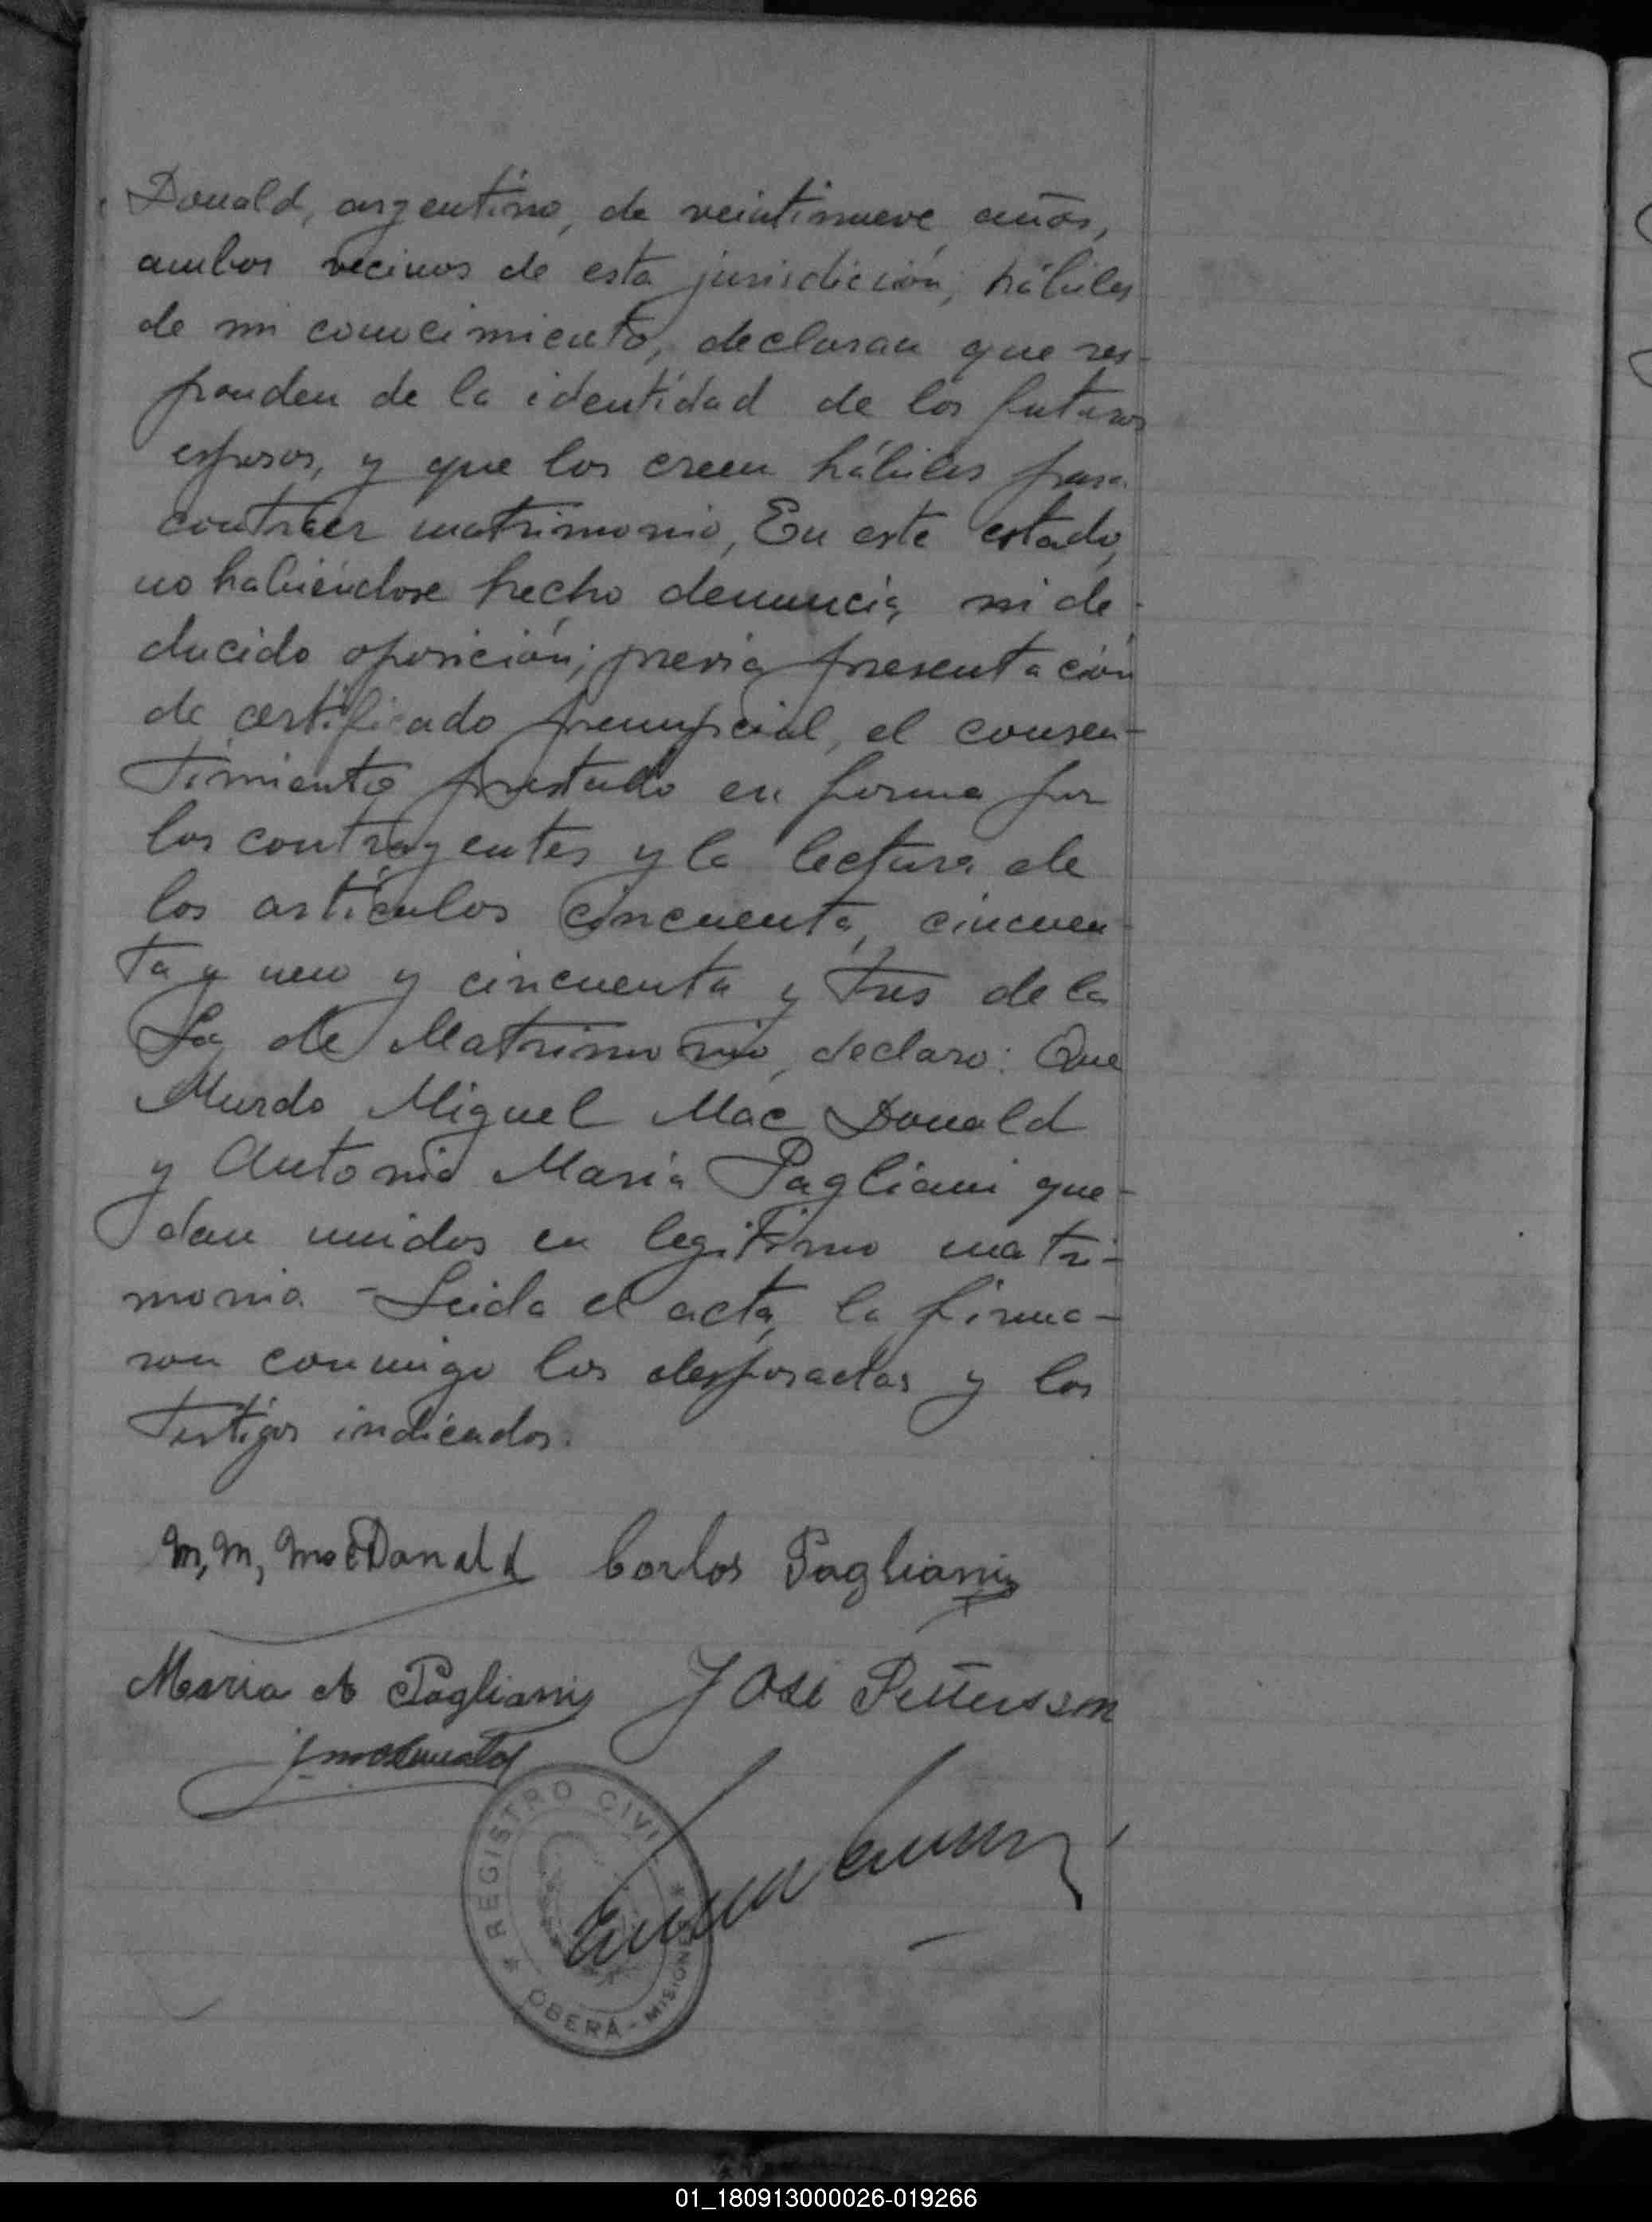 Donald, argentino, de veintinueve años,
ambos vecinos de esta jurisdicción, hábiles
de mi conocimiento, declaran que res-
ponden de la identidad de los futuros
esposos, y que los creen hábiles para
contraer matrimonio, En este estado,
no habiéndose hecho denuncia, ni de-
ducido oposición; previa presentación
de certificado prenupcial, el consen-
timiento prestado en forma por
los contrayentes y la lectura de
los artículos cincuenta, cincuen-
ta y uno y cincuenta y tres de la
de Matrimonio, declaro: Que
Murdo Miguel Mac Donald
y Antonia María Pagliani que-
dan unidos en legítimo matri-
monio - Leida el acta, la firma-
ron conmigo los desposados y los
testigos indicados.
M, M, MacDonald Carlos Pagliani
Maria A Pagliani José Pettersson
REGISTRO CIVIL
OBERÁ - MISIONES
01_180913000026-019266